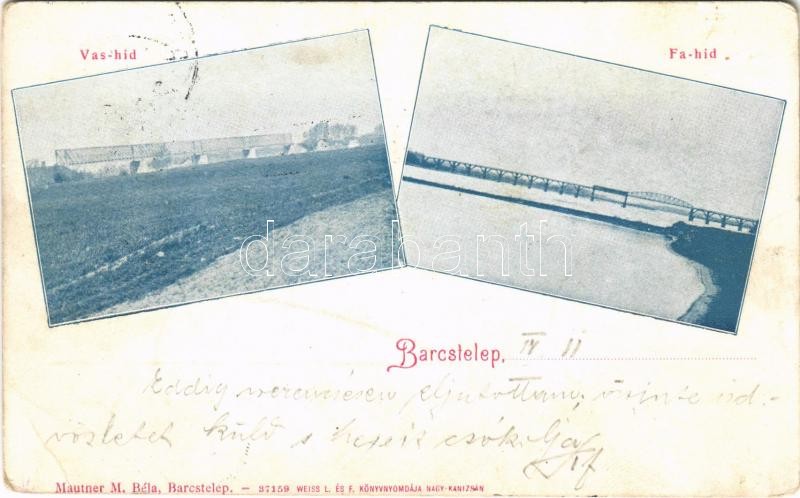 Vas-hid
Fa-hid
darabanth
Barcstelep, IV 11
Eddig szerencsésen eljutottam, őszinte üd-
vözletet küld s kezeit csókolja
Mautner M. Béla, Barcstelep. – 37159 WEISS L. ÉS F. KÖNYVNYOMDÁJA NAGY-KANIZSÁN